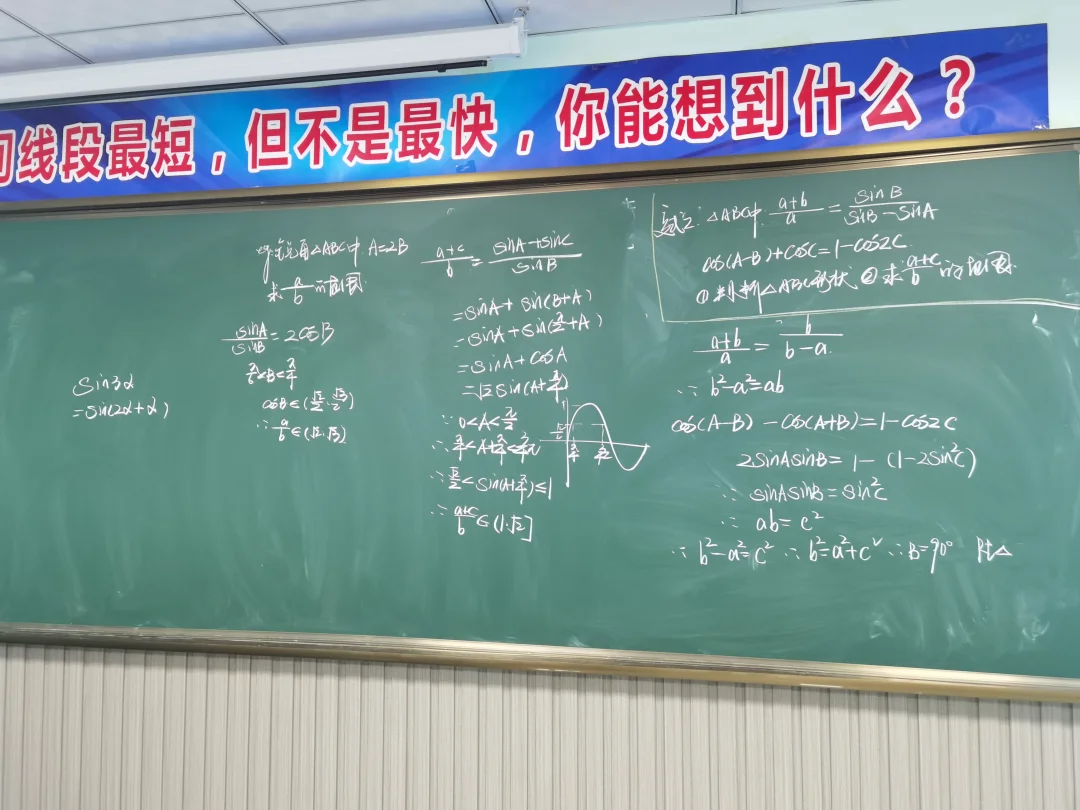 间线段最短，但不是最快，你能想到什么？
例:锐角△ABC中 A=2B
求 a/b 的范围.
sinA/sinB = 2cosB
π/6<B<π/4
cosB∈(√2/2, √3/2)
∴ a/b ∈(√2,√3)
sin3α
=sin(2α+α)
(a+c)/b = (sinA+sinC)/sinB
=sinA+sin(B+A)
=sinA+sin(π/2+A)
=sinA+cosA
=√2sin(A+π/4)
∵ 0<A<π/2
∴ π/4<A+π/4<3/4π
∴ √2/2<sin(A+π/4)≤1
∴ (a+c)/b ∈(1,√2]
△ABC中, (a+b)/a = sinB/(sinB-sinA)
cos(A-B)+cosC=1-cos2C.
①判断△ABC形状 ②求 (a+c)/b 的范围.
(a+b)/a = b/(b-a)
∴ b²-a²=ab
cos(A-B)-cos(A+B)=1-cos2C
2sinAsinB=1-(1-2sin²C)
∴ sinAsinB=sin²C
∴ ab=c²
∴ b²-a²=c² ∴ b²=a²+c² ∴B=90° Rt△